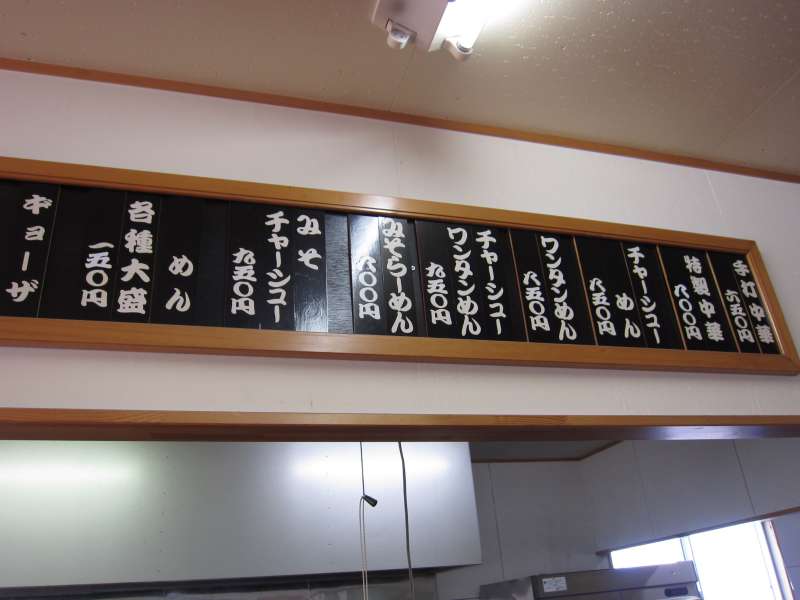 手打中華
六五〇円
特製中華
八〇〇円
チャーシュー
めん
八五〇円
ワンタンめん
八五〇円
チャーシュー
ワンタンめん
九五〇円
みそらーめん
八〇〇円
みそ
チャーシュー
めん
九五〇円
各種大盛
一五〇円
ギョーザ